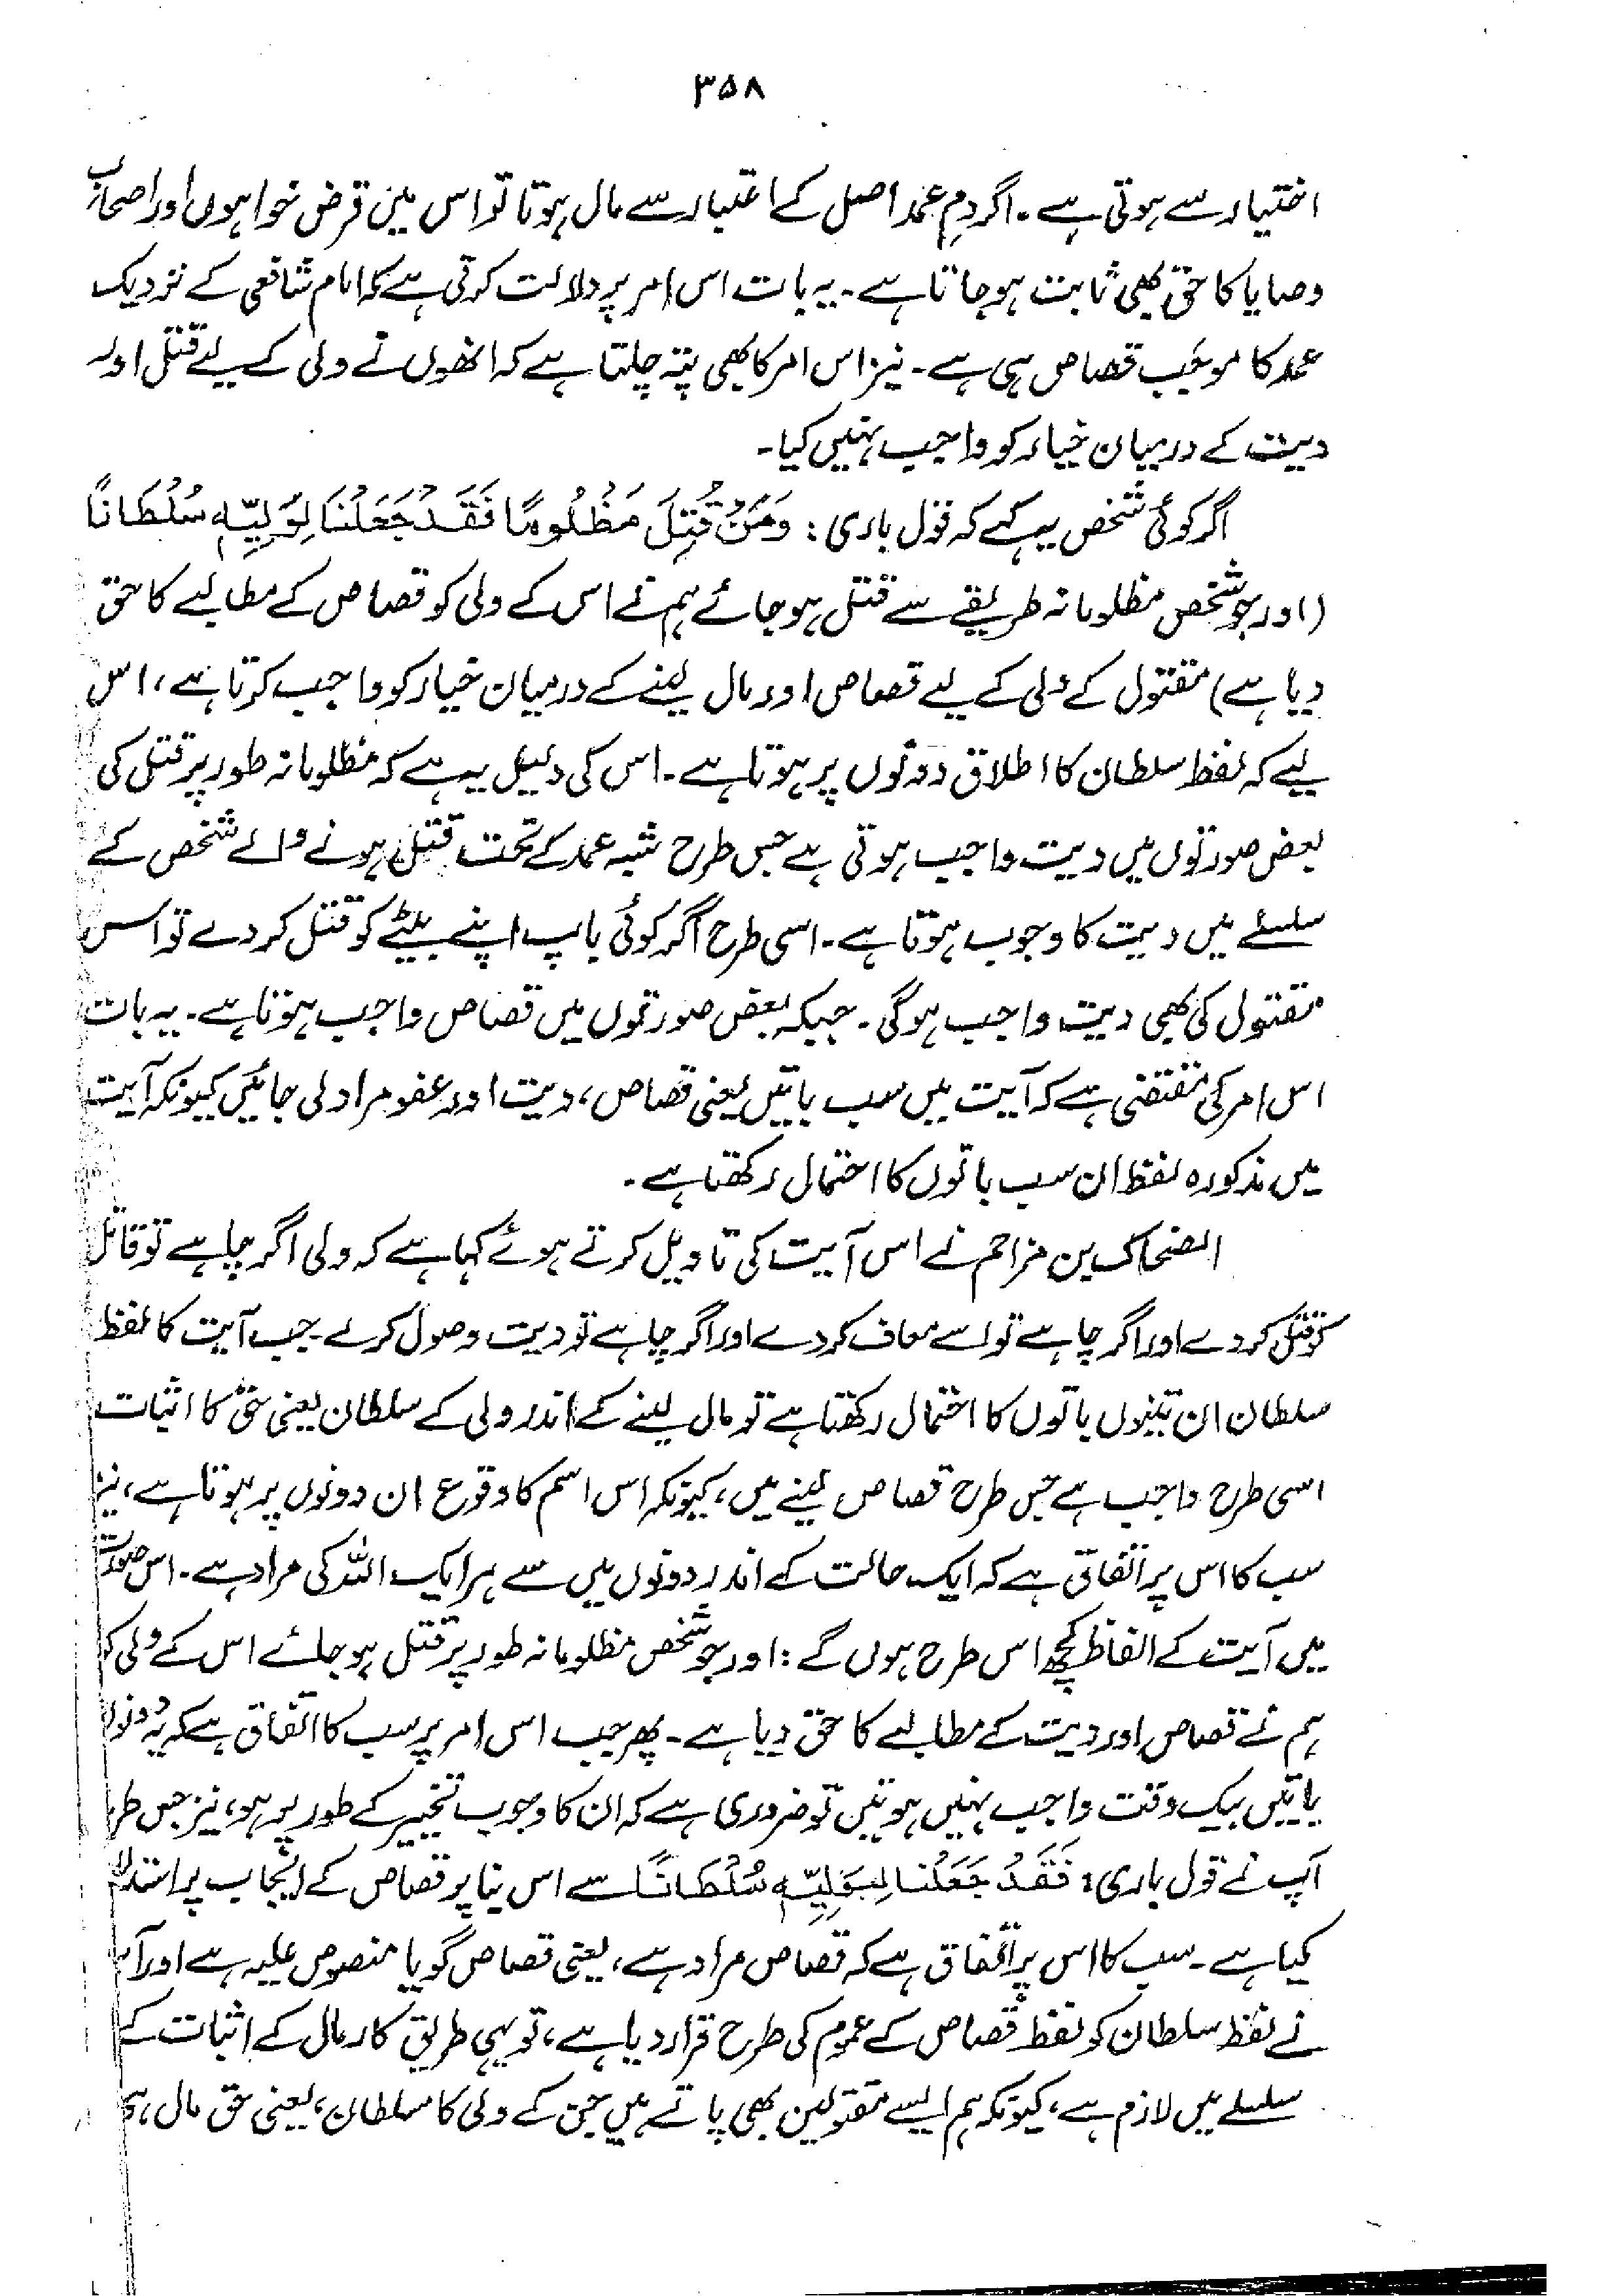 ۳۵۸
اختیار سے ہوتی ہے۔ اگر دمِ عمد اصل کے اعتبار سے مال ہوتا تو اس میں قرض خواہوں اور اصحابِ
وصایا کا حق بھی ثابت ہو جاتا ہے۔ یہ بات اس امر پر دلالت کرتی ہے کہ امام شافعی کے نزدیک
عمد کا موجَب قصاص ہی ہے۔ نیز اس امر کا بھی پتہ چلتا ہے کہ انھوں نے ولی کے لیے قتل اور
دیت کے درمیان خیار کو واجب نہیں کیا۔
اگر کوئی شخص یہ کہے کہ قول باری: وَمَنْ قُتِلَ مَظْلُومًا فَقَدْ جَعَلْنَا لِوَلِيِّهٖ سُلْطَانًا
(اور جو شخص مظلومانہ طریقے سے قتل ہو جائے ہم نے اس کے ولی کو قصاص کے مطالبے کا حق
دیا ہے) مقتول کے ولی کے لیے قصاص اور مال لینے کے درمیان خیار کو واجب کرتا ہے، اس
لیے کہ لفظ سلطان کا اطلاق دونوں پر ہوتا ہے۔ اس کی دلیل یہ ہے کہ مظلومانہ طور پر قتل کی
بعض صورتوں میں دیت واجب ہوتی ہے جس طرح شبہ عمد کے تحت قتل ہونے والے شخص کے
سلسلے میں دیت کا وجوب ہوتا ہے۔ اسی طرح اگر کوئی باپ اپنے بیٹے کو قتل کر دے تو اس
مقتول کی بھی دیت واجب ہوگی۔ جبکہ بعض صورتوں میں قصاص واجب ہوتا ہے۔ یہ بات
اس امر کی مقتضی ہے کہ آیت میں سب باتیں یعنی قصاص، دیت اور عفو مراد لی جائیں کیونکہ آیت
میں مذکورہ لفظ ان سب باتوں کا احتمال رکھتا ہے۔
الضحاک بن مزاحم نے اس آیت کی تاویل کرتے ہوئے کہا ہے کہ ولی اگر چاہے تو قاتل
کو قتل کر دے اور اگر چاہے تو اسے معاف کر دے اور اگر چاہے تو دیت وصول کر لے۔ جب آیت کا لفظ
سلطان ان تینوں باتوں کا احتمال رکھتا ہے تو مال لینے کے اندر ولی کے سلطان یعنی حق کا اثبات
اسی طرح واجب ہے جس طرح قصاص لینے میں، کیونکہ اس اسم کا وقوع ان دونوں پر ہوتا ہے، نیز
سب کا اس پر اتفاق ہے کہ ایک حالت کے اندر دونوں میں سے ہر ایک اللہ کی مراد ہے۔ اس صورت
میں آیت کے الفاظ کچھ اس طرح ہوں گے: اور جو شخص مظلومانہ طور پر قتل ہو جائے اس کے ولی کو
ہم نے قصاص اور دیت کے مطالبے کا حق دیا ہے۔ پھر جب اس امر پر سب کا اتفاق ہے کہ یہ دونوں
باتیں بیک وقت واجب نہیں ہوتیں تو ضروری ہے کہ ان کا وجوب تخییر کے طور پر ہو، نیز جس
آپ نے قول باری: فَقَدْ جَعَلْنَا لِوَلِيِّهٖ سُلْطَانًا سے اس بنا پر قصاص کے ایجاب پر
کیا ہے۔ سب کا اس پر اتفاق ہے کہ قصاص مراد ہے، یعنی قصاص گویا منصوص علیہ ہے اور
نے لفظ سلطان کو لفظ قصاص کے عموم کی طرح قرار دیا ہے، تو یہی طریق کار مال کے اثبات کے
سلسلے میں لازم ہے، کیونکہ ہم ایسے مقتولین بھی پاتے ہیں جن کے ولی کا سلطان، یعنی حق مال،